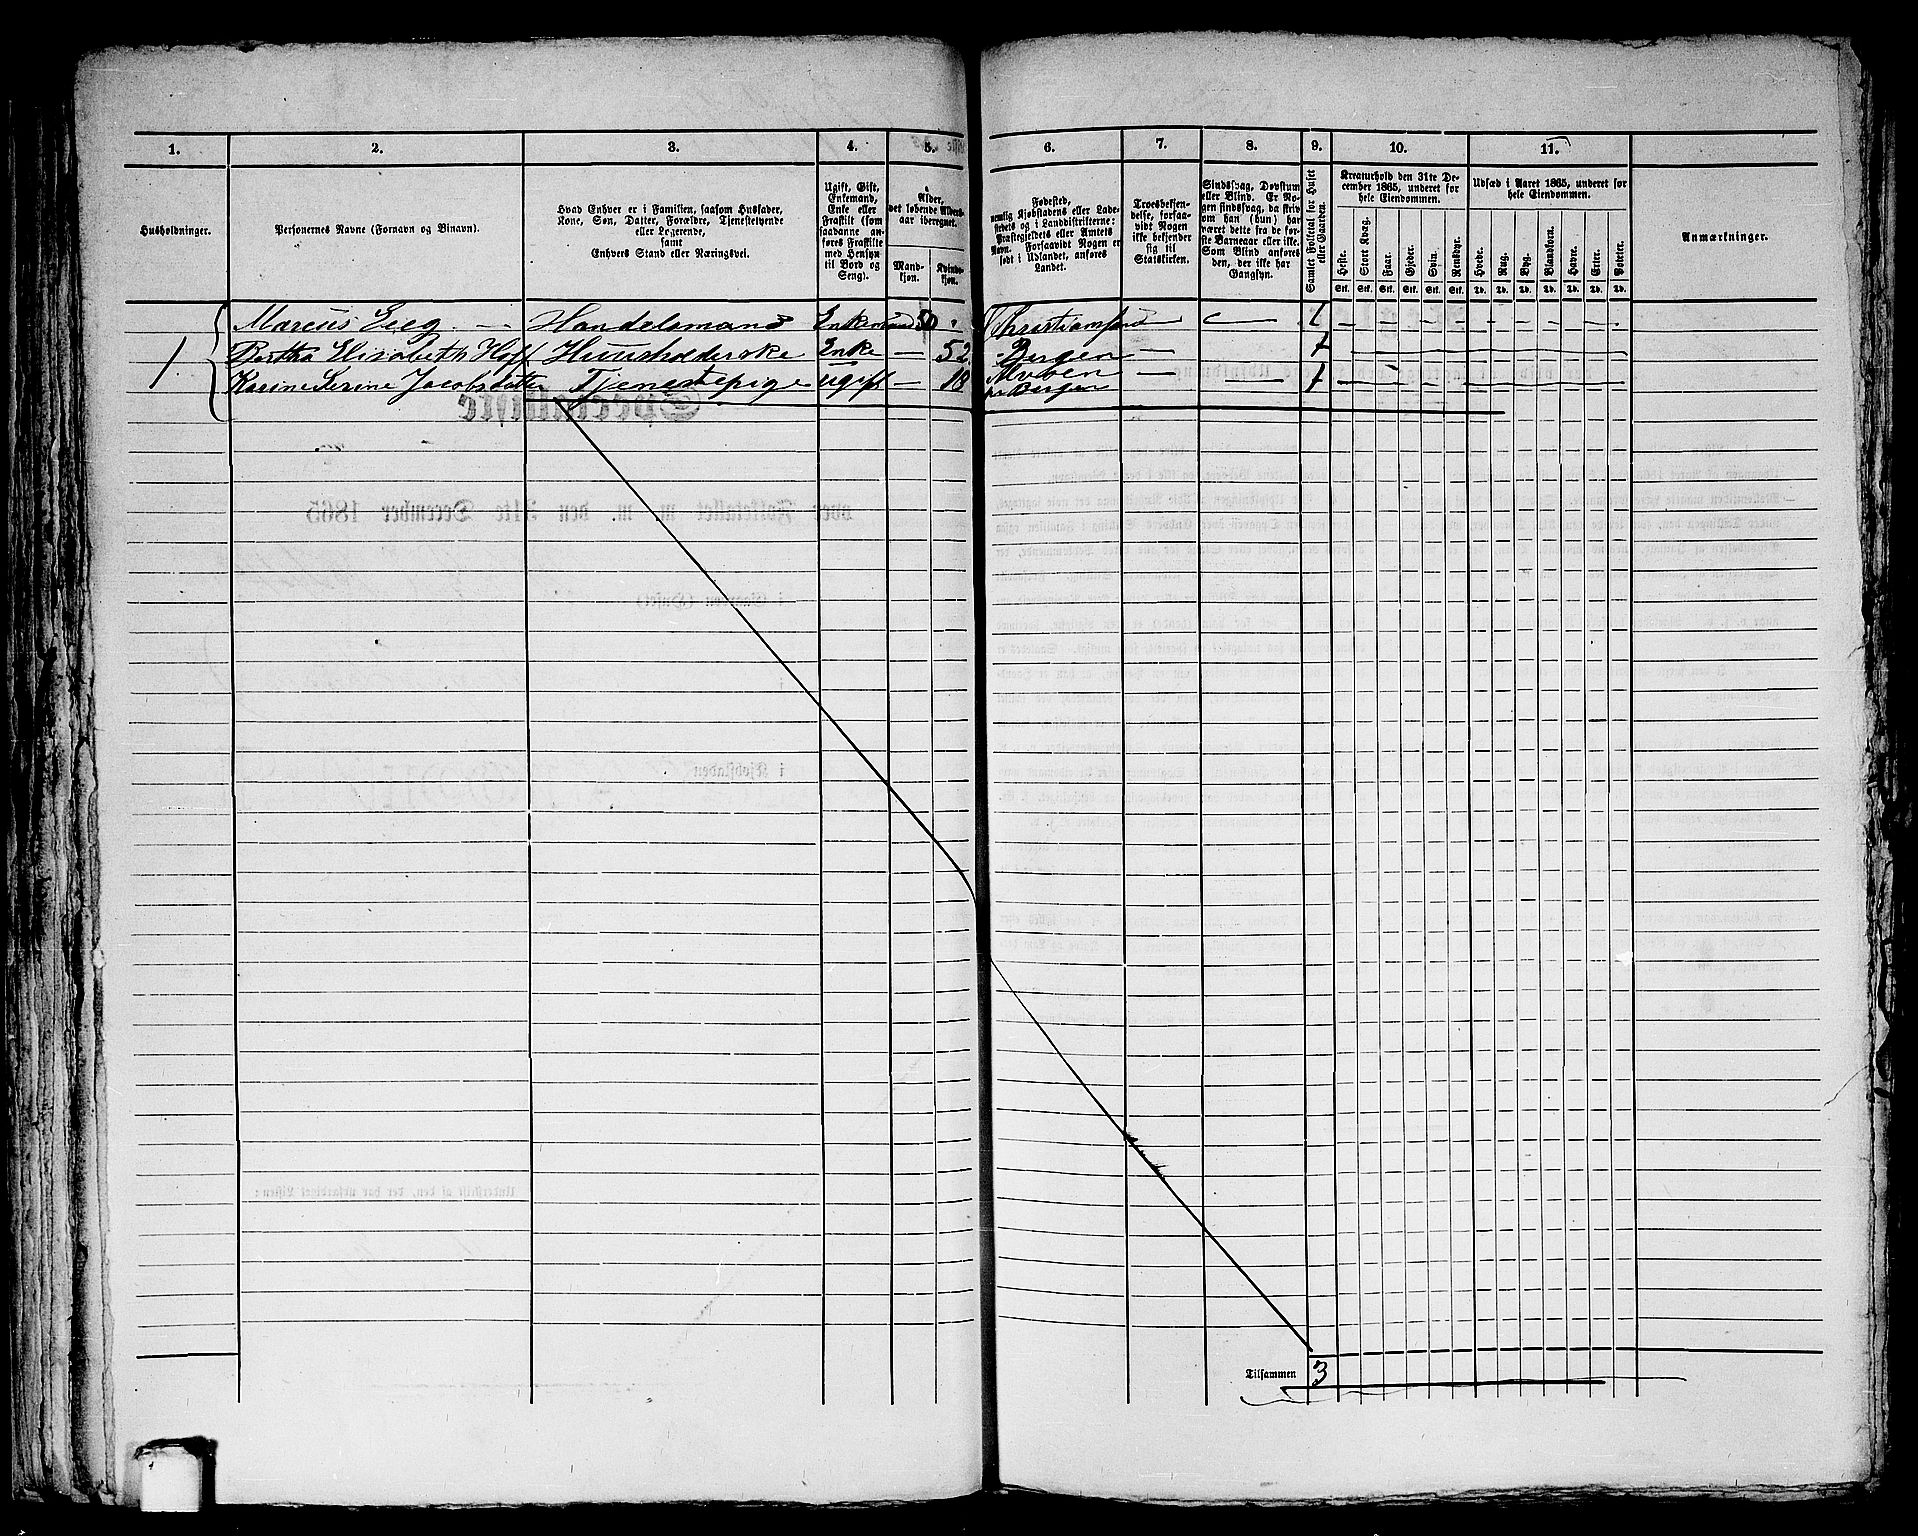 1. 2. 3. 4. 5. 6. 7. 8. 9. 10. 11.
Husholdninger.
Personernes Navne (Fornavn og Binavn).
Hvad Enhver er i Familien, saasom Husfader,
Kone, Søn, Datter, Forældre, Tjenestetyende
eller Logerende,
samt
Enhvers Stand eller Næringsvei.
Ugift, Gift,
Enkemand,
Enke eller
Fraskilt (som
saadanne an-
føres Fraskilte
med Hensyn
til Bord og
Seng).
Alder,
det løbende Alders-
aar iberegnet.
Mand-
kjøn.
Kvinde-
kjøn.
Fødested,
nemlig Kjøbstadens eller Lade-
stedets og i Landdistrikterne:
Præstegjeldets eller Amtets
Navn. Forsaavidt Nogen er
født i Udlandet, anføres
Landet.
Troesbekjen-
delse, forsaa-
vidt Nogen
ikke bekjender
sig til
Statskirken.
Sindssvag, Døvstum
eller Blind. Er No-
gen sindssvag, da skriv
om han (hun) har
været dette fra de før-
ste Barneaar eller ikke.
Som Blind anføres
den, der ikke har
Gangsyn.
Samlet Folketal for Huset
eller Gaarden.
Kreaturhold den 31te De-
cember 1865, underet for
hele Eiendommen.
Heste. Stort Kvæg. Faar. Gjeder. Svin. Rensdyr.
Stk. Stk. Stk. Stk. Stk. Stk.
Udsæd i Aaret 1865, underet for
hele Eiendommen.
Hvede. Rug. Byg. Blandkorn. Havre. Erter. Poteter.
Td. Td. Td. Td. Td. Td. Td.
Anmærkninger.
Marcus Eieg — Handelsmand Enkemand 50 Christiansund — 1
1. Bertha Elisabeth Hoff Huusholderske Enke — 52 Bergen — 1
Karine Serine Jacobsdatter Tjenestepige ugift — 18 Alvøen — — 1
pr Bergen
Tilsammen 3